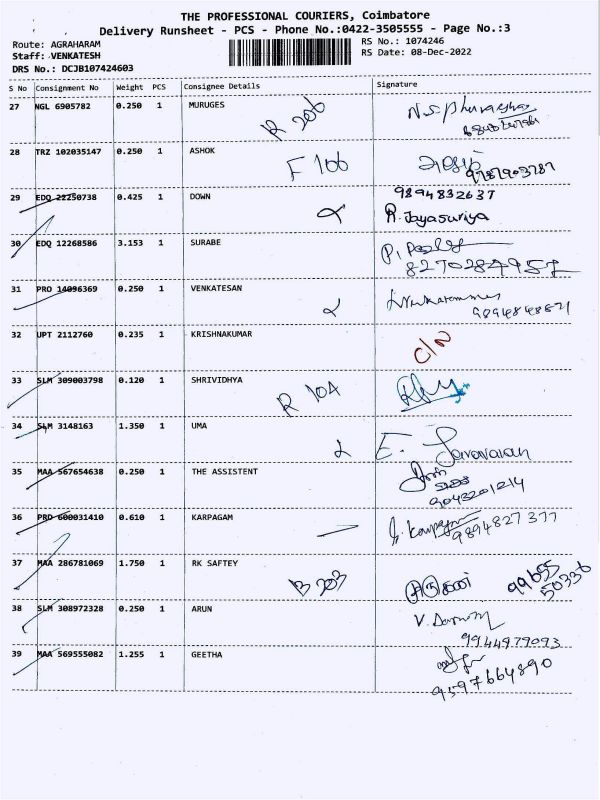 THE PROFESSIONAL COURIERS, Coimbatore
Delivery Runsheet - PCS - Phone No.:0422-3505555 - Page No.:3
Route: AGRAHARAM
RS No.: 1074246
Staff: VENKATESH
RS Date: 08-Dec-2022
DRS No.: DCJB107424603
S No Consignment No Weight PCS Consignee Details Signature
27 NGL 6905782 0.250 1 MURUGES R 206
28 TRZ 102035147 0.250 1 ASHOK F 106
9787903787
29 EDQ 22250738 0.425 1 DOWN 9894832637
R. Jayasuriya
30 EDQ 12268586 3.153 1 SURABE
31 PRO 14096369 0.250 1 VENKATESAN
32 UPT 2112760 0.235 1 KRISHNAKUMAR C/N
33 SLM 309003798 0.120 1 SHRIVIDHYA R 104
34 SLM 3148163 1.350 1 UMA E.
35 MAA 567654638 0.250 1 THE ASSISTENT
9043201214
36 PRD 600031410 0.610 1 KARPAGAM
9894827377
37 MAA 286781069 1.750 1 RK SAFTEY B 203 99655
50336
38 SLM 308972328 0.250 1 ARUN
9944979093
39 MAA 569555082 1.255 1 GEETHA
9597664890